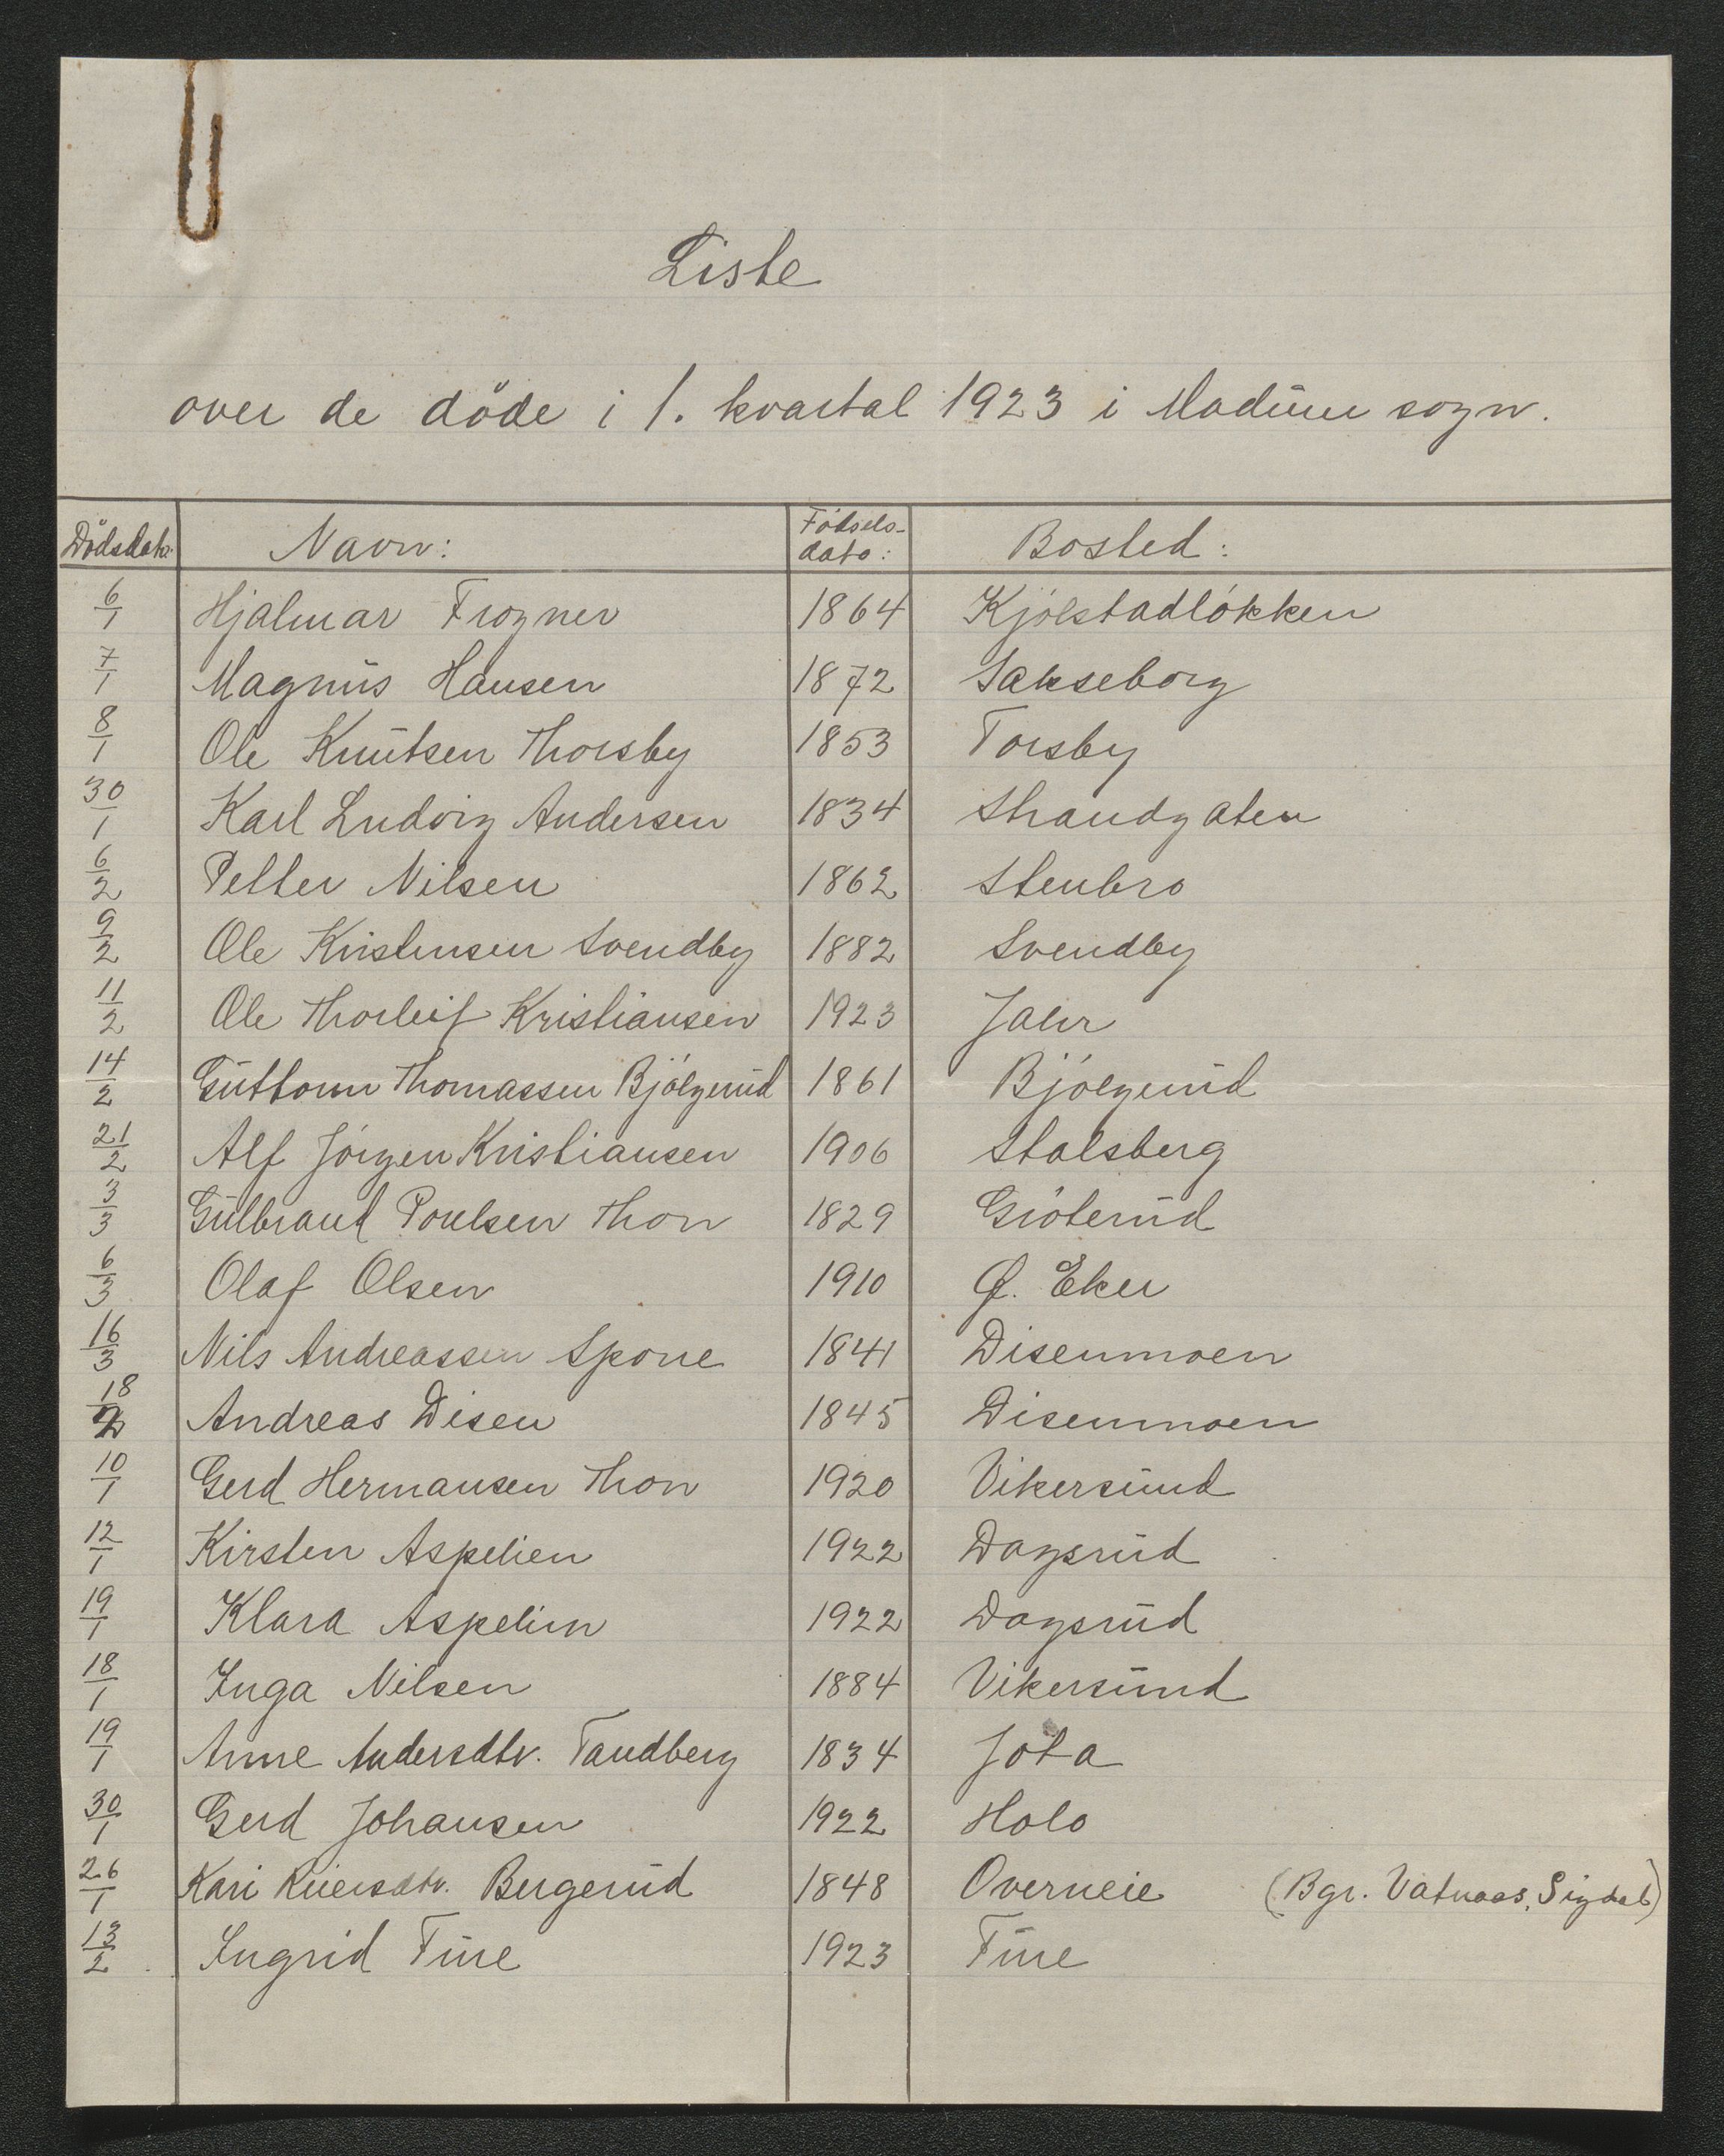 Liste
over de döde i 1. kvartal 1923 i Modum sogn.
Dödsdato: Navn: Födsels-dato: Bosted:
6/1 Hjalmar Frogner 1864 Kjölstadlökken
7/1 Magnus Hansen 1872 Sakseborg
8/1 Ole Knutsen Thorsby 1853 Torsby
30/1 Karl Ludvig Andersen 1834 Strandgaten
6/2 Petter Nilsen 1862 Stenbro
9/2 Ole Kristensen Svendby 1882 Svendby
11/2 Ole Thorleif Kristiansen 1923 Jahr
14/2 Guttorm Thomassen Bjölgerud 1861 Bjölgerud
21/2 Alf Jörgen Kristiansen 1906 Stalsberg
3/3 Gulbrand Poulsen Thon 1829 Gröterud
6/3 Olaf Olsen 1910 Ø. Eker
16/3 Nils Andreassen Spone 1841 Disenmoen
18/2 Andreas Disen 1845 Disenmoen
10/1 Gerd Hermansen Thon 1920 Vikersund
12/1 Kirsten Aspelien 1922 Dagsrud
19/1 Klara Aspelien 1922 Dagsrud
18/1 Inga Nilsen 1884 Vikersund
19/1 Anne Andersdtr. Tandberg 1834 Jota
30/1 Gerd Johansen 1922 Holo
26/1 Kari Reiersdtr. Bergerud 1848 Overneie (Bgr. Vatnaas, Sigdal)
13/2 Ingrid Fure 1923 Fure